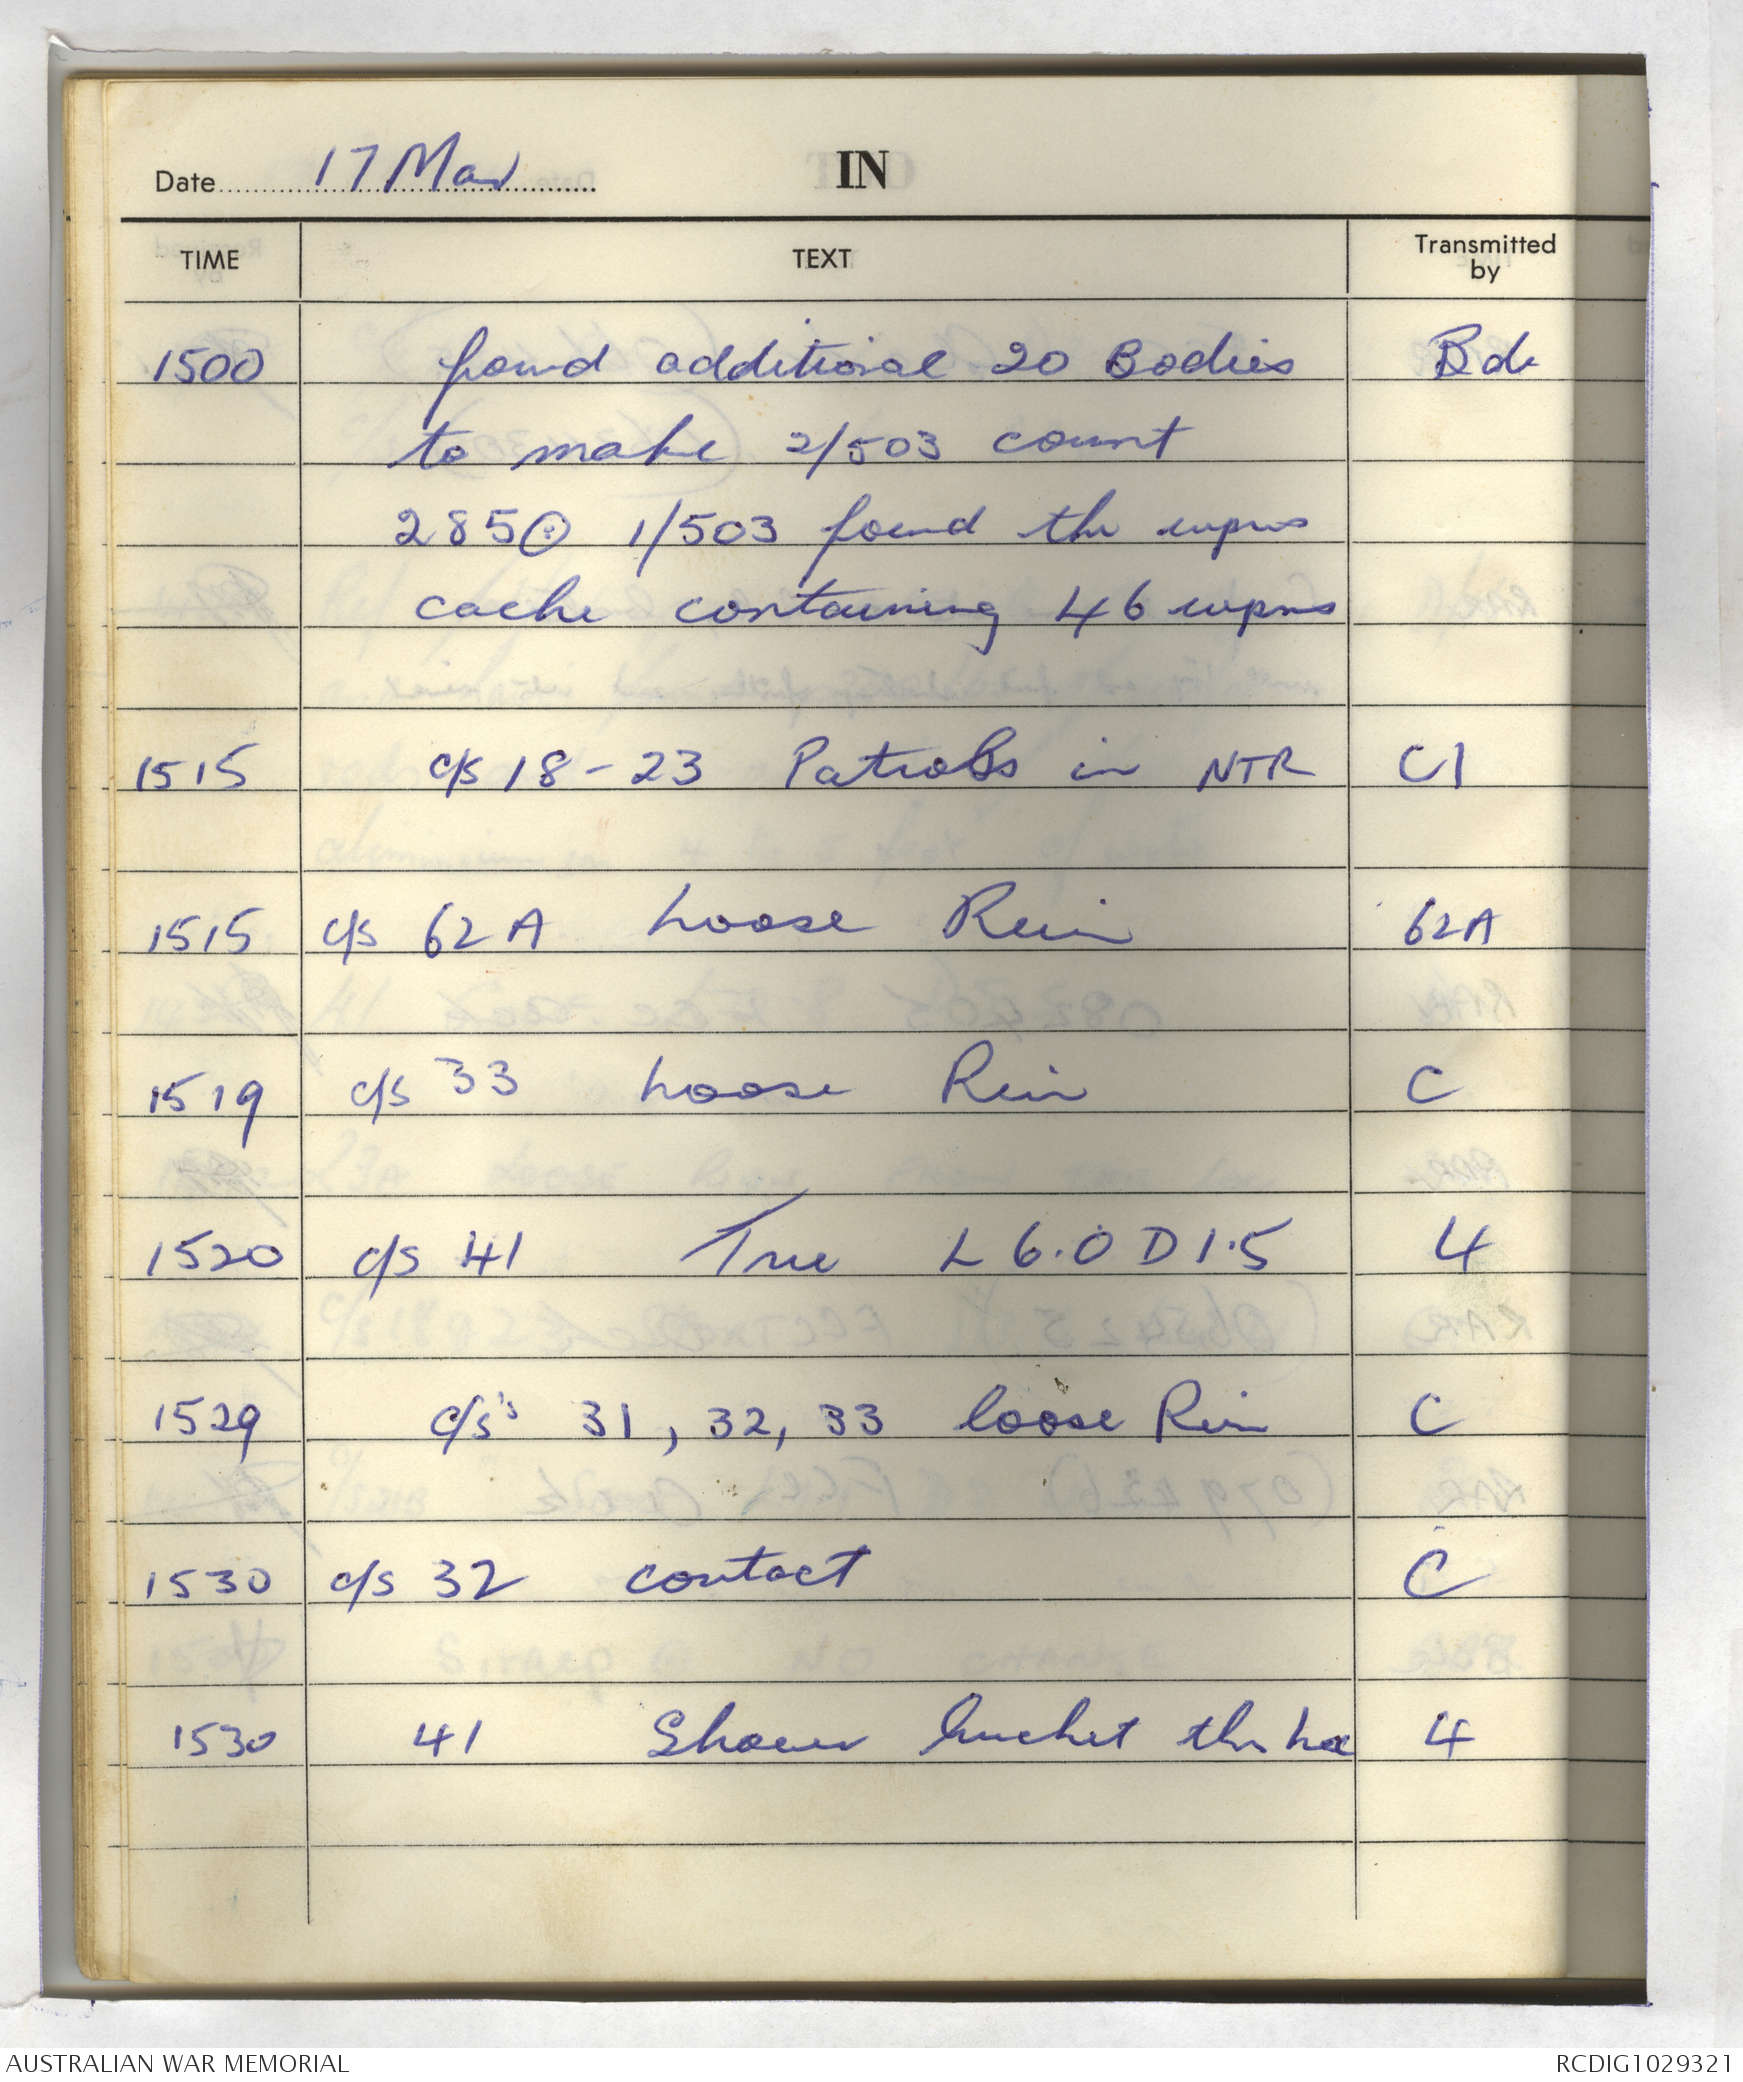 Date 17 Mar
IN
TIME TEXT Transmitted by
1500 found additional 20 Bodies Bde
to make 2/503 count
285 ⊙ 1/503 found the wpns
cache containing 46 wpns
1515 c/s 18-23 Patrols in NTR C1
1515 c/s 62A loose Rein 62A
1519 c/s 33 loose Rein C
1520 c/s 41 True L 6.0 D 1.5 4
1529 c/s's 31, 32, 33 loose Rein C
1530 c/s 32 contact C
1530 41 Shower bucket 4
AUSTRALIAN WAR MEMORIAL RCDIG1029321